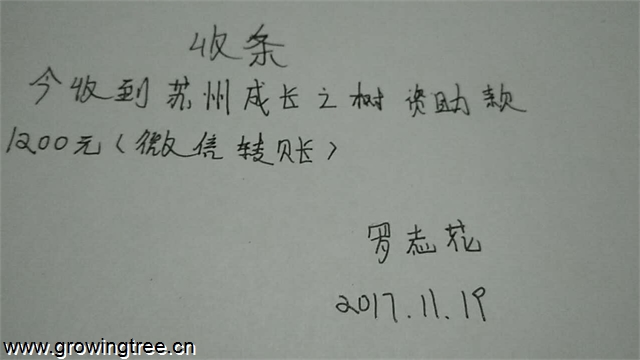 收条
今收到苏州成长之树资助款
1200元(微信转账)
罗志花
2017.11.19
www.growingtree.cn